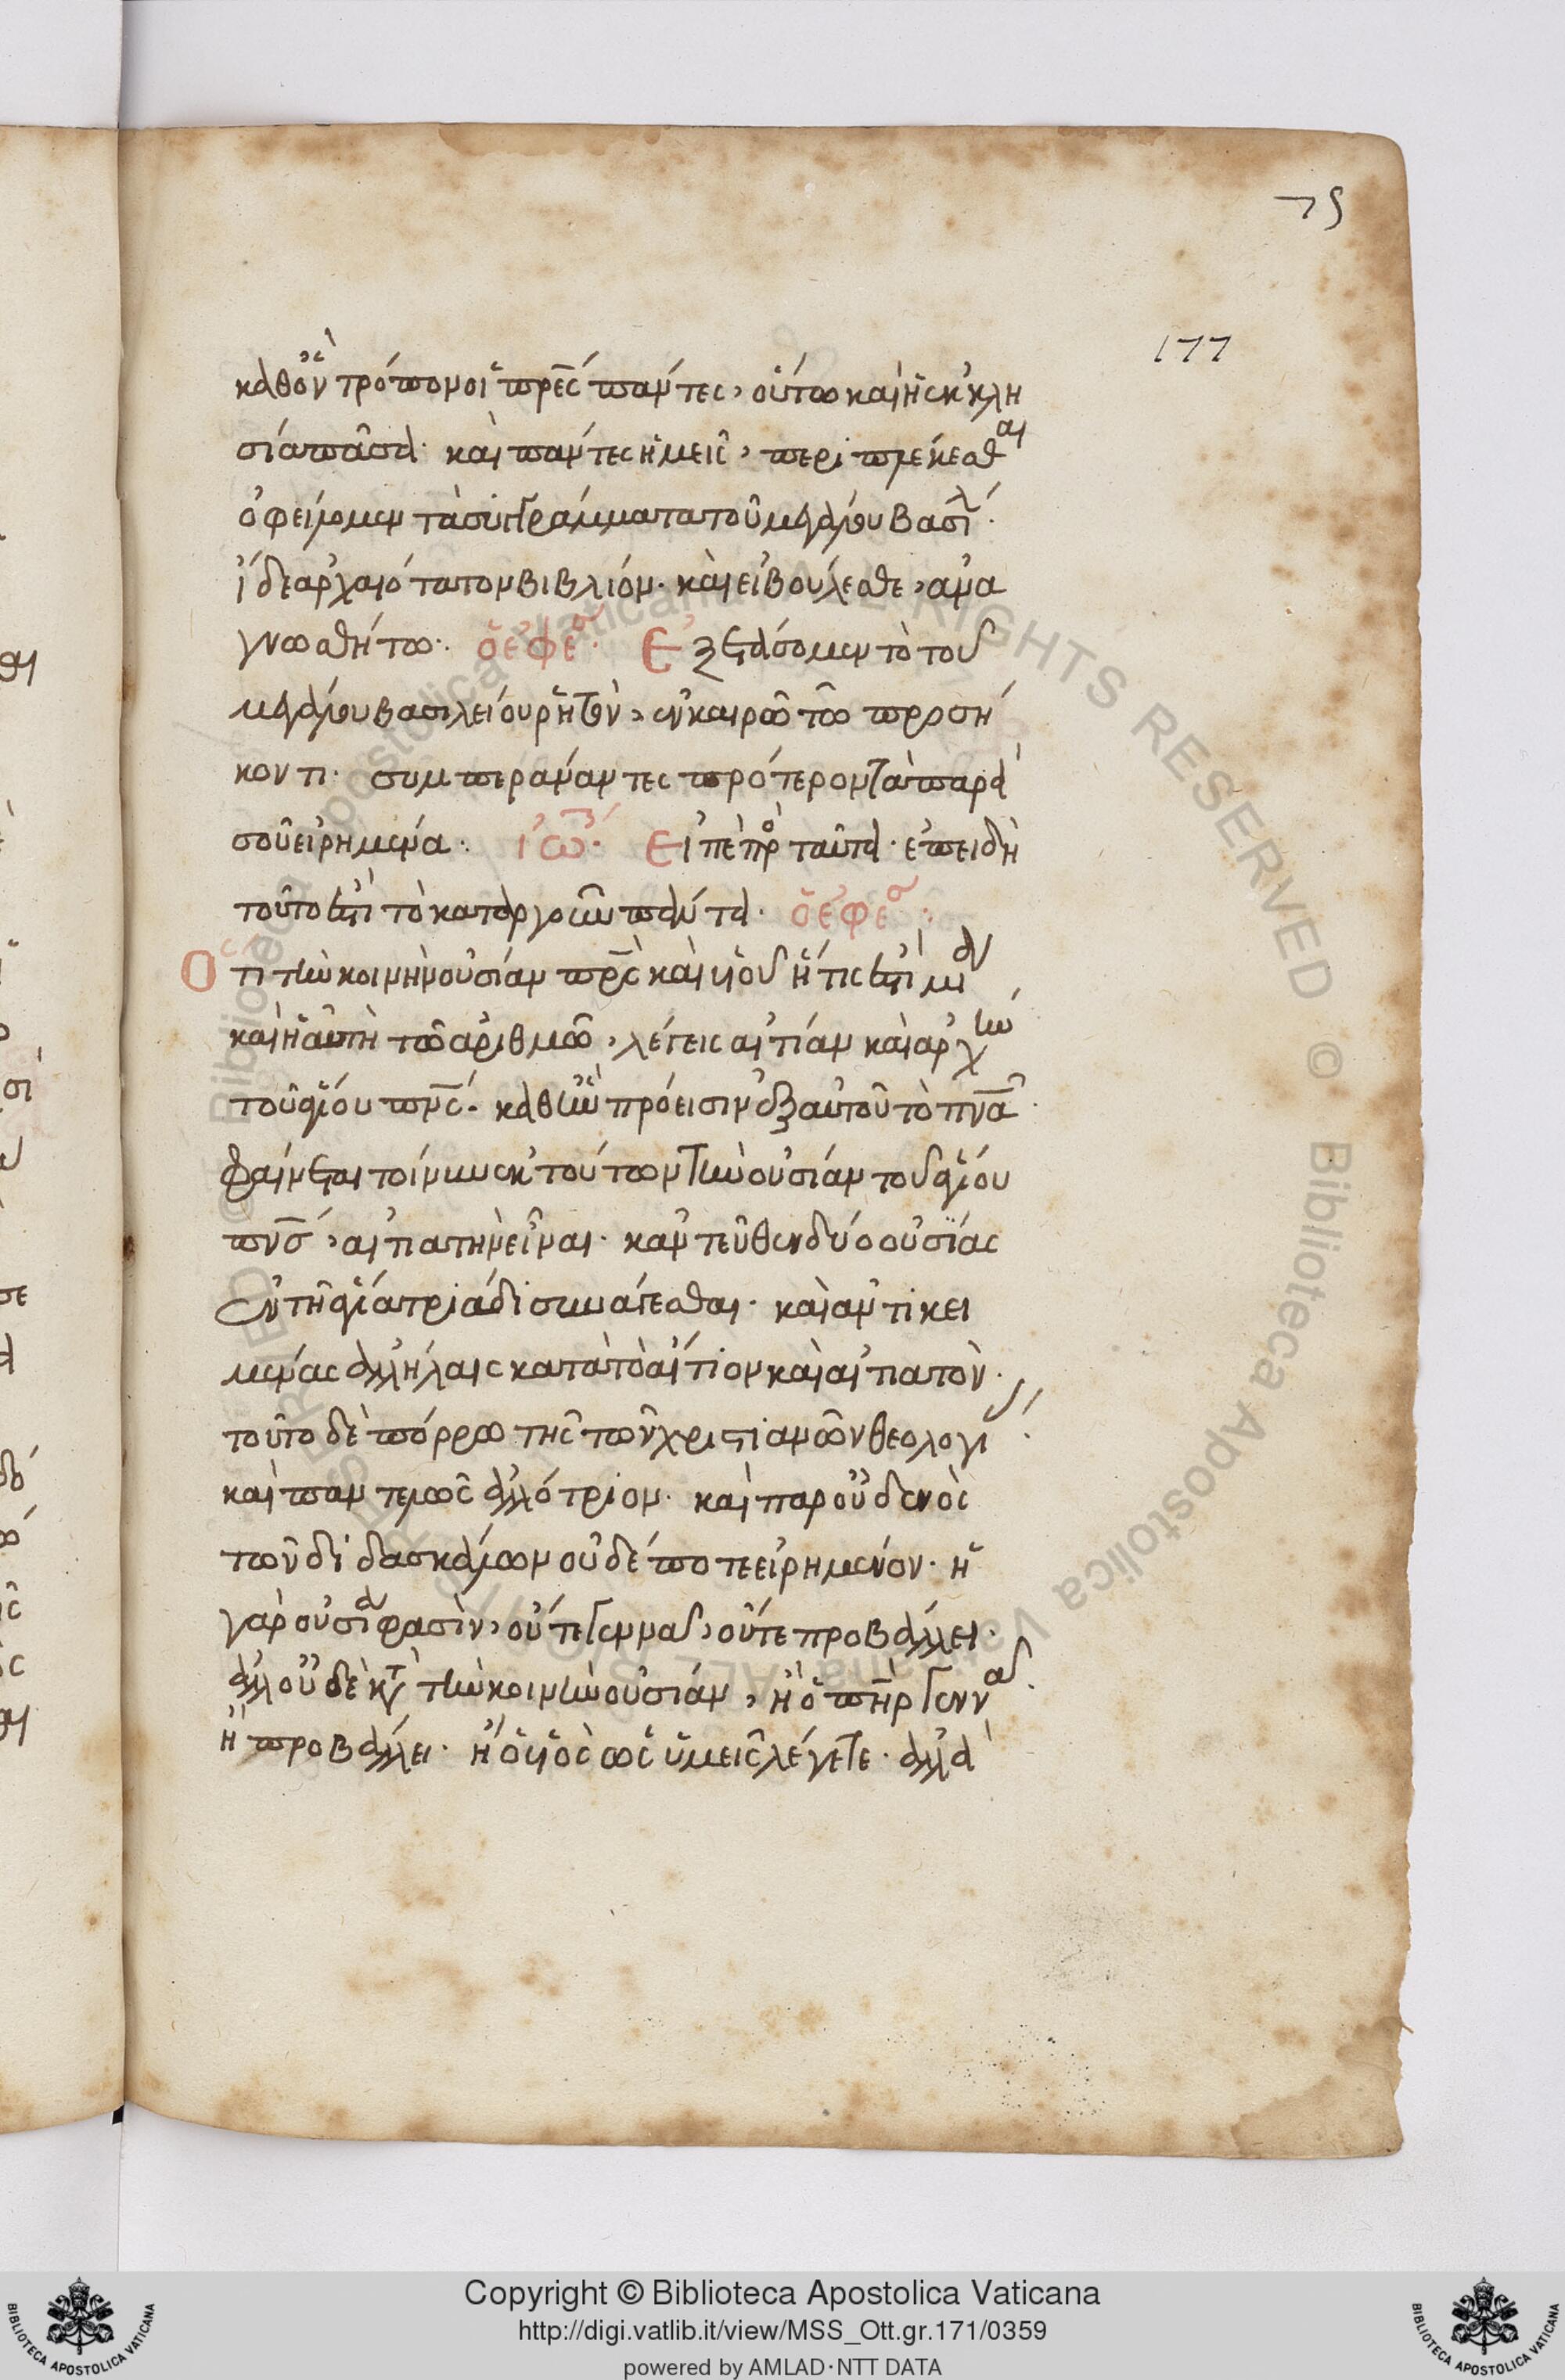 75
177
καθὃν τρόπον οἱ πρες πάντες, οὕτω καὶ ἡ ἐκκλη
σία πᾶσα· καὶ πάντες ἡμεῖς, περιπλέκεσθαι
ὀφείλομεν τὰ συγγράμματα τοῦ μεγάλου βασιλ·
ἴδε ἀρχαιότατον βιβλίον· καὶ εἰ βούλεσθε, ἀνα
γνωσθήτω· ὁ ἐφέσ· Ἐξετάσομεν τὸ τοῦ
μεγάλου βασιλείου ῥητὸν, ἐν καιρῶ τῶ προσή
κοντι· συμπεράναντες πρότερον τὰ παρὰ
σοῦ εἰρημένα· ἰω· Εἰπὲ πρὸ ταῦτα· ἐπειδὴ
τοῦτο ἐστὶ τὸ κατάργουν πάντα· ὁ ἐφέσ·
Ὅτι τὴν κοινὴν οὐσίαν πρς καὶ υἱοῦ ἥτις ἐστὶ μία
καὶ ἡ αὐτὴ τῶ ἀριθμῶ, λέγεις αἰτίαν καὶ ἀρχὴν
τοῦ ἁγίου πνς· καθ' ἣν πρόεισιν ἐξ αὐτοῦ τὸ πνα·
φαίνεται τοίνυν ἐκ τούτων τὴν οὐσίαν τοῦ ἁγίου
πνσ, αἰτιατὴν εἶναι· κἀντεῦθεν δύο οὐσίας
ἐν τῆ ἁγία τριάδι συνάγεσθαι· καὶ ἀντικει
μένας ἀλλήλαις κατὰ τὸ αἴτιον καὶ αἰτιατὸν·
τοῦτο δὲ πόρρω τῆς τῶν χριστιανῶν θεολογίας·
καὶ παντελῶς ἀλλότριον· καὶ παρ' οὐδενὸς
τῶν διδασκάλων οὐδέποτε εἰρημένον· ἡ
γὰρ οὐσία φασὶν, οὔτε γεννᾶ, οὔτε προβάλλει·
ἀλλ' οὐδὲ κτ τὴν κοινὴν οὐσίαν, ἢ ὁ πὴρ γεννᾶ·
ἢ προβάλλει· ἢ ὁ υἱὸς ὡς ὑμεῖς λέγετε· ἀλλὰ
Copyright © Biblioteca Apostolica Vaticana
http://digi.vatlib.it/view/MSS_Ott.gr.171/0359
powered by AMLAD·NTT DATA